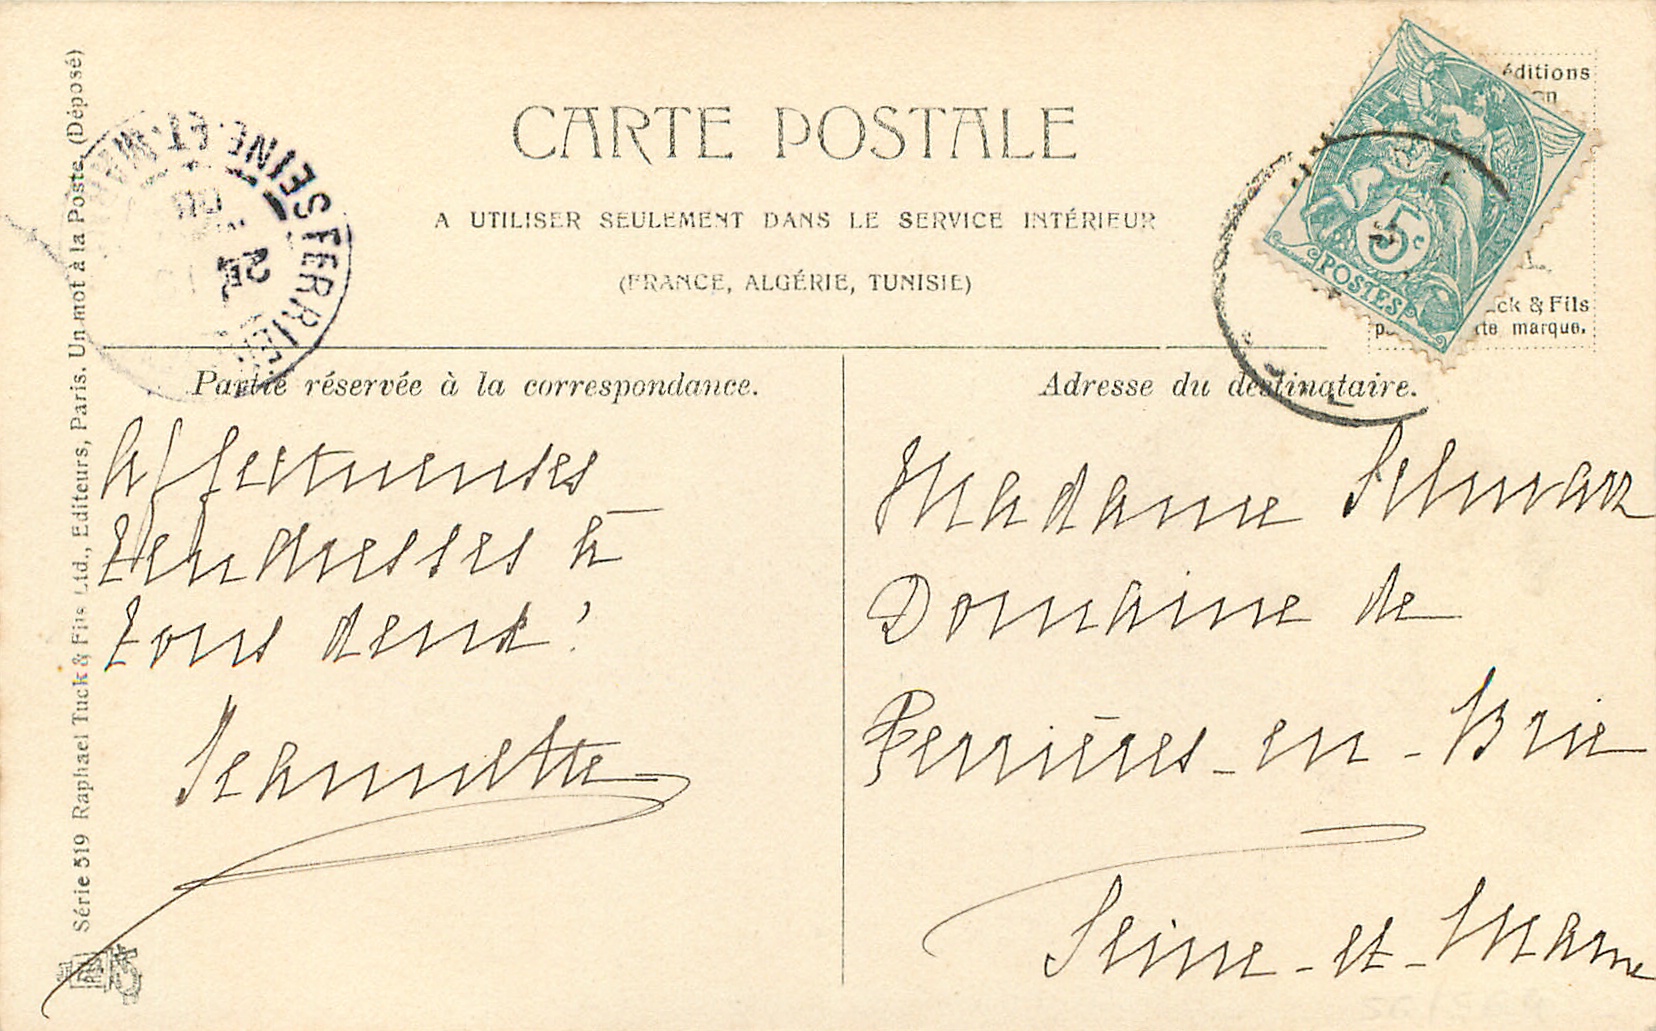 CARTE POSTALE
A UTILISER SEULEMENT DANS LE SERVICE INTÉRIEUR
(FRANCE, ALGÉRIE, TUNISIE)
Série 519 Raphael Tuck & Fils Ltd., Editeurs, Paris. Un mot à la Poste. (Déposé)
FERRIERES
SEINE-ET-MAR
éditions
5c
POSTES
ck & Fils
te marque.
Partie réservée à la correspondance.
Affectueuses
tendresses à
tous deux !
Jeannette
Adresse du destinataire.
Madame
Domaine de
Ferrières-en-Brie
Seine-et-Marne